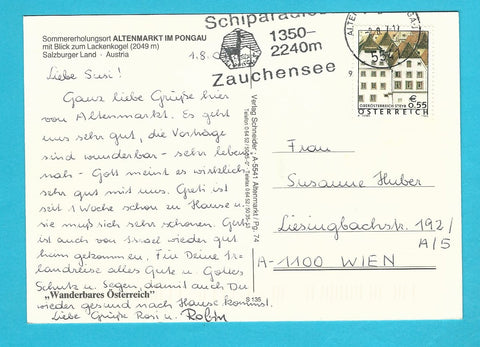 Sommererholungsort ALTENMARKT IM PONGAU
mit Blick zum Lackenkogel (2049 m)
Salzburger Land · Austria
1.8.
Liebe Susi!
Ganz liebe Grüße hier
von Altenmarkt. Es geht
uns sehr gut, die Vorträge
sind wunderbar - sehr lebens
nah - Gott meint es wirklich
sehr gut mit uns. Greti ist
seit 1 Woche schon zu Hause u.
sie muß sich sehr schonen. Gusti
ist auch von Israel wieder gut
heim gekommen. Für Deine Ir-
landreise alles Gute u. Gottes
Schutz u. Segen, damit auch Du
wieder gesund nach Hause kommst.
Liebe Grüße Rosi u. Robin
„Wanderbares Österreich"
S 135
Verlag Schneider, A-5541 Altenmarkt/Pg. 74
Schiparadies
1350-
2240m
Zauchensee
9
OBERÖSTERREICH
€ 0,55
ÖSTERREICH
Frau
Susanne Huber
Liesingbachstr. 192/
A/5
A-1100 WIEN